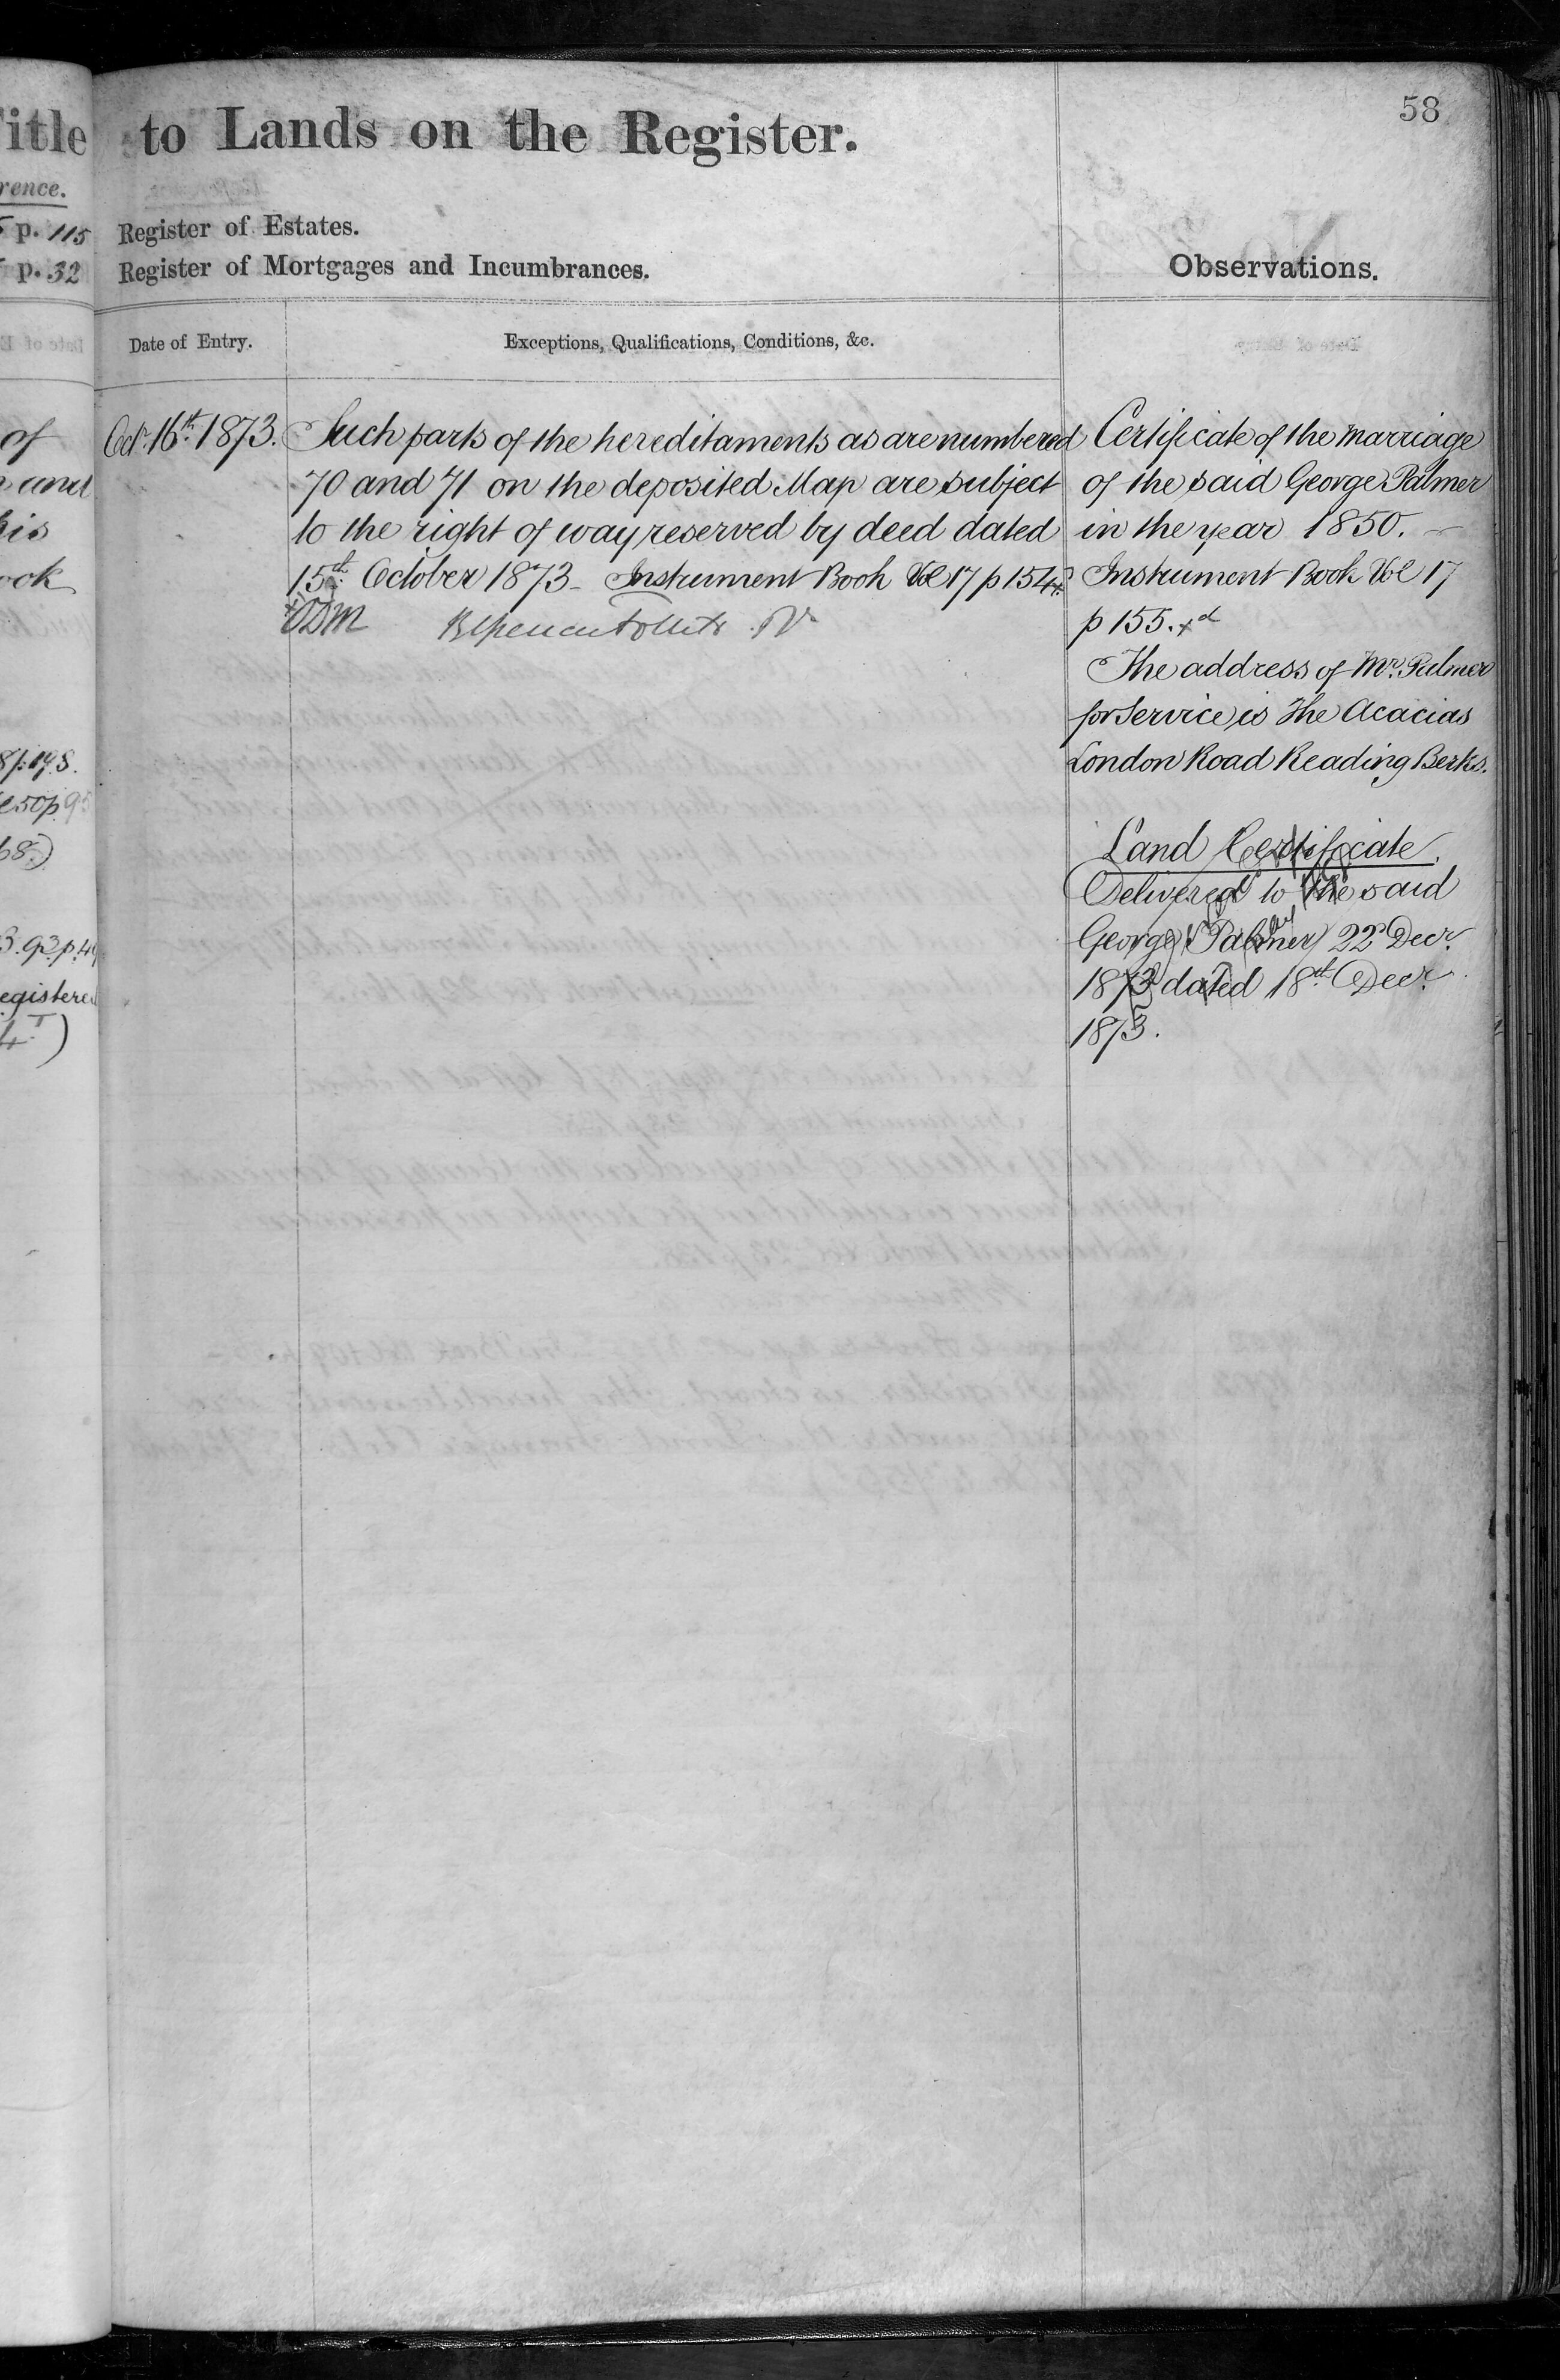 58
Title to Lands on the Register.
rence.
p. 115 Register of Estates.
p. 32 Register of Mortgages and Incumbrances.
Observations.
Date of Entry.
Exceptions, Qualifications, Conditions, &c.
Octr. 16th. 1873.
Such parts of the hereditaments as are numbered
70 and 71 on the deposited Map are subject
to the right of way reserved by deed dated
15th. October 1873 - Instrument Book Vol 17 p 154
Certificate of the marriage
of the said George Palmer
in the year 1850. -
Instrument Book Vol 17
p 155.
The address of Mr. Palmer
for Service is The Acacias
London Road Reading Berks.
Land Certificate.
Delivered to the said
George Palmer 22d Decr.
1873 dated 18th Decr.
1873.
of
and
his
ook
egistered